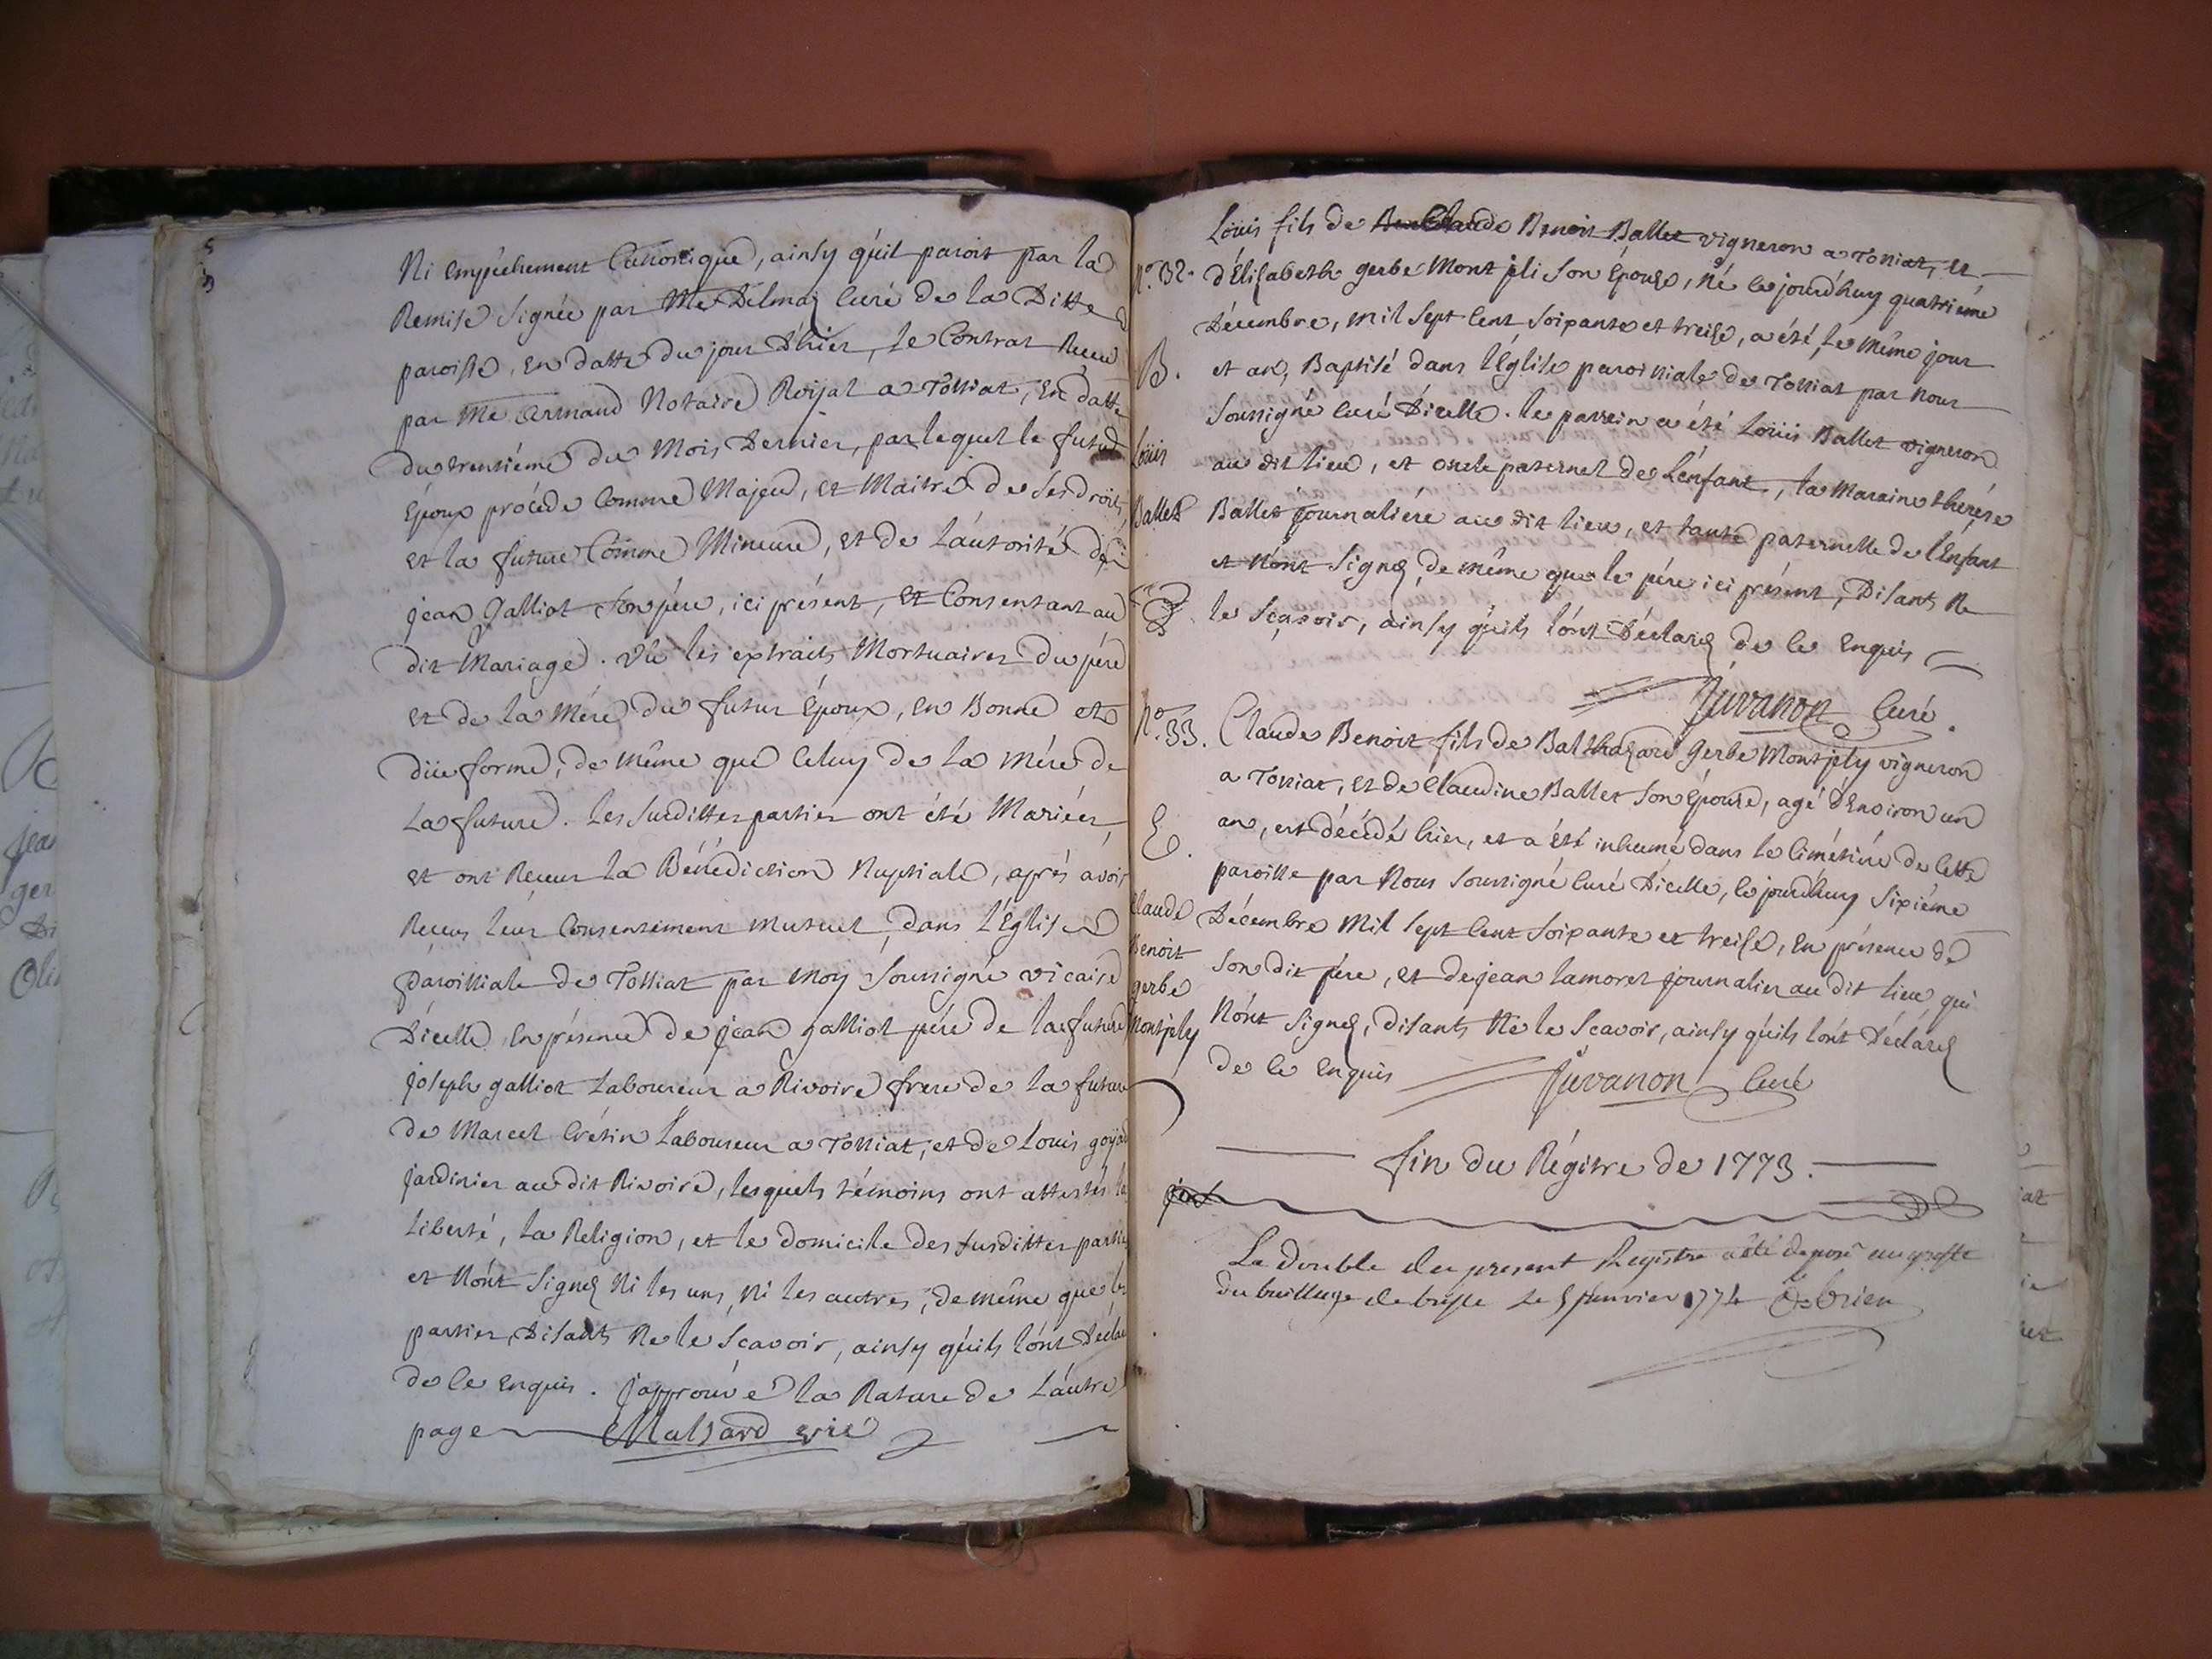 Ni Empêchement Canonique, ainsy qu'il paroit par la
Remise signée par Me Delmaz Curé de la Ditte
paroisse, En datte du jour D'hier, le Contrat Receu
par Me Armand Notaire Roijal a Tossiat, En datte
du trentiéme du Mois Dernier, par lequel le futur
Époux procéde Comme Majeur, et Maitre de Ses droits
et la future Comme Mineure, et de L'autorité de
jean Galliot son pére, ici présent, et Consentant au
dit Mariage. Vû les extraits Mortuaires du pére
et de la Mére du futur Époux, en Bonne et
düe forme, de même que Celuy de la Mére de
La future. Les Susdittes parties ont été Mariées,
et ont Receu la Bénédiction Nuptiale, aprés avoir
Receu leur Consentement Mutuel, dans l'Église
paroissiale de Tossiat par Moy Soussigné vicaire
D'icelle En présence de jean galliot pére de la future
joseph galliot Laboureur a Rivoire frere de la future
de Marcel Crétin Laboureur a Tossiat, et de Louis
jardinier au dit Rivoire, lesquels témoins ont attestés la
Liberté, la Religion, et le domicile des susdittes parties
et N'ont Signez Ni les uns, Ni les autres, de même que les
parties, Disants Ne le Scavoir, ainsy qu'ils l'ont
de ce Enquis. J'approuve la Rature de L'autre
page
N°. 32. Louis fils de Claude Benoit Ballet vigneron a Tossiat, et
d'Elisabeth gerbe Mont jeli Son Épouse, Né ce jourd'huy quatriéme
Décembre, mil Sept Cent Soixante et treise, a été, le Même jour
B. et an, Baptisé dans l'Église paroissiale de Tossiat par Nous
Soussigné Curé D'icelle. le parrain a été Louis Ballet vigneron
Louis au dit lieu, et oncle paternel de L'enfant, la Maraine therése
Ballet Ballet journaliére au dit lieu, et tante paternelle de l'Enfant
et N'ont Signez, de même que le pére ici présent, Disants Ne
le Sçavoir, ainsy qu'ils l'ont Déclarez de Ce Enquis
Juvanon Curé.
N°. 33. Claude Benoit fils de Balthazard Gerbe Montjely vigneron
a Tossiat, et de Claudine Ballet Son Épouse, agé D'Environ un
E. an, est décédé hier, et a été inhumé dans le Cimétière de Cette
paroisse par Nous Soussigné Curé D'icelle, ce jourd'huy Sixiéme
Claude Décembre Mil Sept Cent Soixante et treise, En présence de
Benoit Son dit pére, et de jean lamoret journalier au dit lieu qui
gerbe N'ont Signez, disants Ne le Scavoir, ainsy qu'ils l'ont Déclarez
Montjely de Ce Enquis Juvanon Curé
fin du Régitre de 1773.
Le double du present Registre a été deposé au greffe
du bailliage de bresse Le 5 janvier 1774